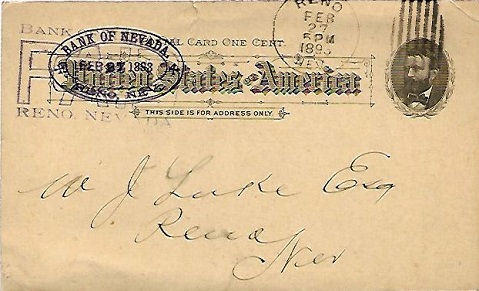 BANK
RENO, NEVADA
BANK OF NEVADA
FEB 27 1893
RENO, NEV.
RENO
FEB
27
5PM
1893
NEV.
AL CARD ONE CENT.
United States of America
THIS SIDE IS FOR ADDRESS ONLY.
W J Luke Esq
Reno
Nev